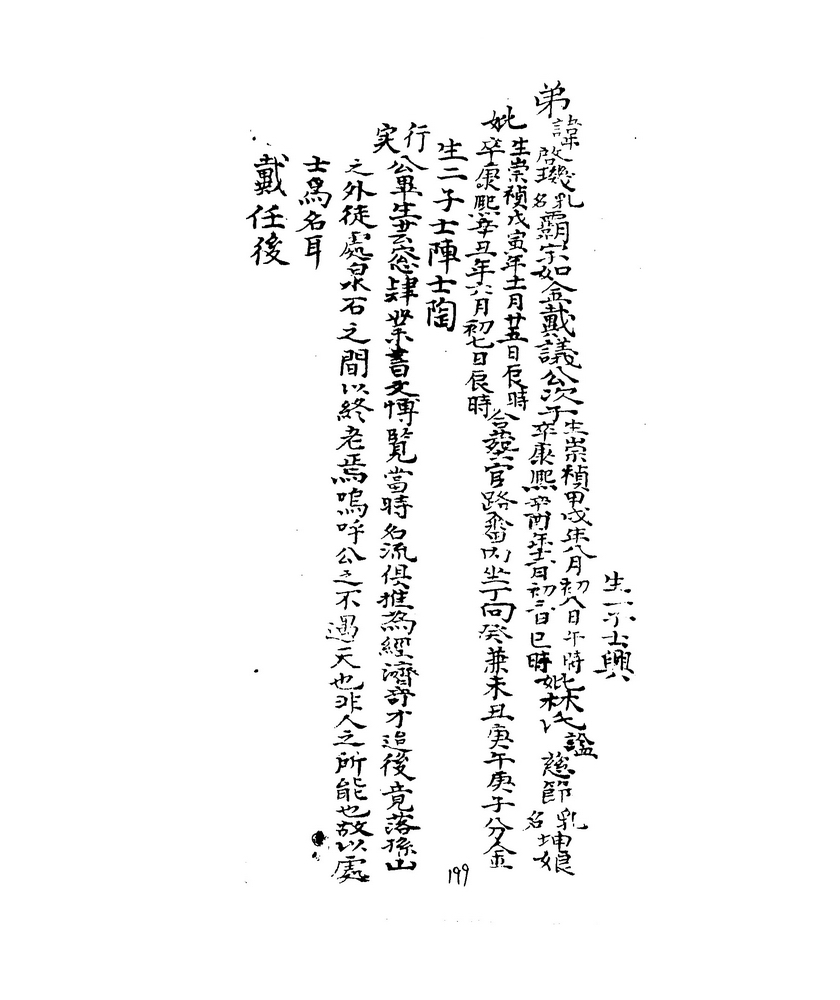 生一子士興
弟諱啓璣乳名霸字如金戴議公次子生崇禎甲戌年八月初八日午時卒康熙辛酉年十一月初三日巳時妣林氏謚慈節乳名坤娘
妣生崇禎戊寅年十一月廿五日辰時卒康熙辛丑年六月初七日辰時合葬官路畨仔坐丁向癸兼未丑庚午庚子分金
生二子士陣士陶
行実公畢生芸窓肄業書文博覽當時名流俱推為經濟奇才迨後竟落孫山
之外徒處泉石之間以終老焉嗚呼公之不遇天也非人之所能也故以處
士爲名耳
戴任後
199